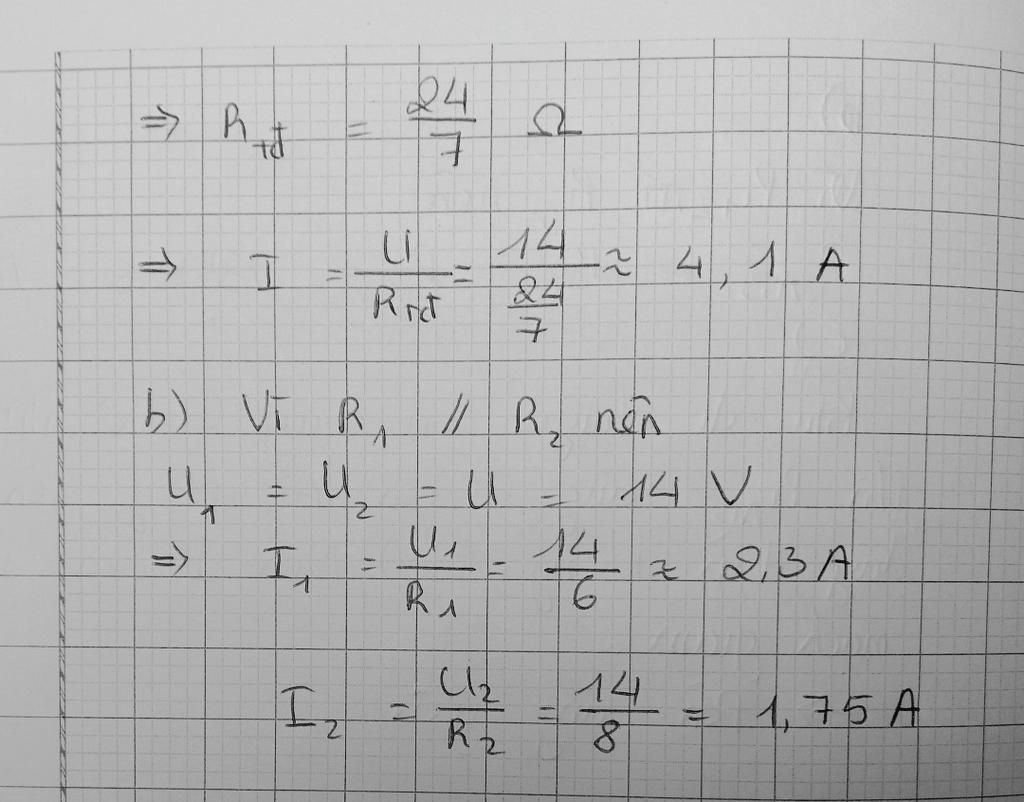 ⇒ R_tđ = 24/7 Ω
⇒ I = U/R_tđ = 14/(24/7) ≈ 4,1 A
b) Vì R₁ // R₂ nên
U₁ = U₂ = U = 14 V
⇒ I₁ = U₁/R₁ = 14/6 ≈ 2,3 A
I₂ = U₂/R₂ = 14/8 = 1,75 A